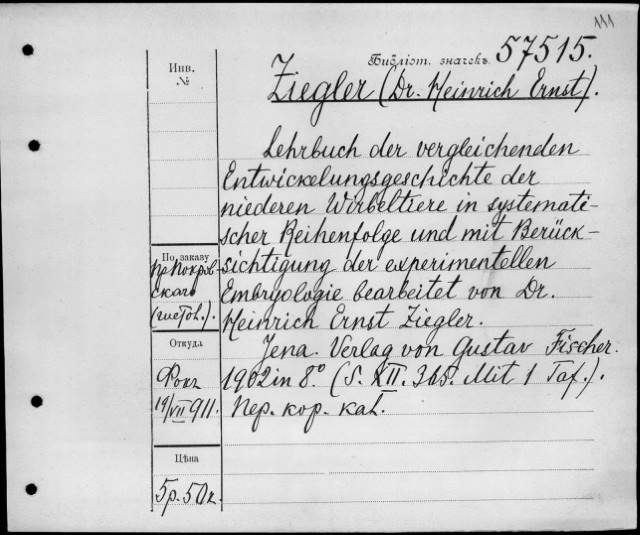 111
Библіот. значекъ 57515.
Инв.
№
Ziegler (Dr. Heinrich Ernst).
Lehrbuch der vergleichenden
Entwickelungsgeschichte der
niederen Wirbeltiere in systemati-
scher Reihenfolge und mit Berück-
sichtigung der experimentellen
Embryologie bearbeitet von Dr.
Heinrich Ernst Ziegler.
Jena. Verlag von Gustav Fischer.
1902 in 8° (S. XII. 365. Mit 1 Taf.).
Пер. кор. кат.
По заказу
Покров-
скаго
(гистол.).
Откуда
19/VII 911.
Цѣна
5р.50к.